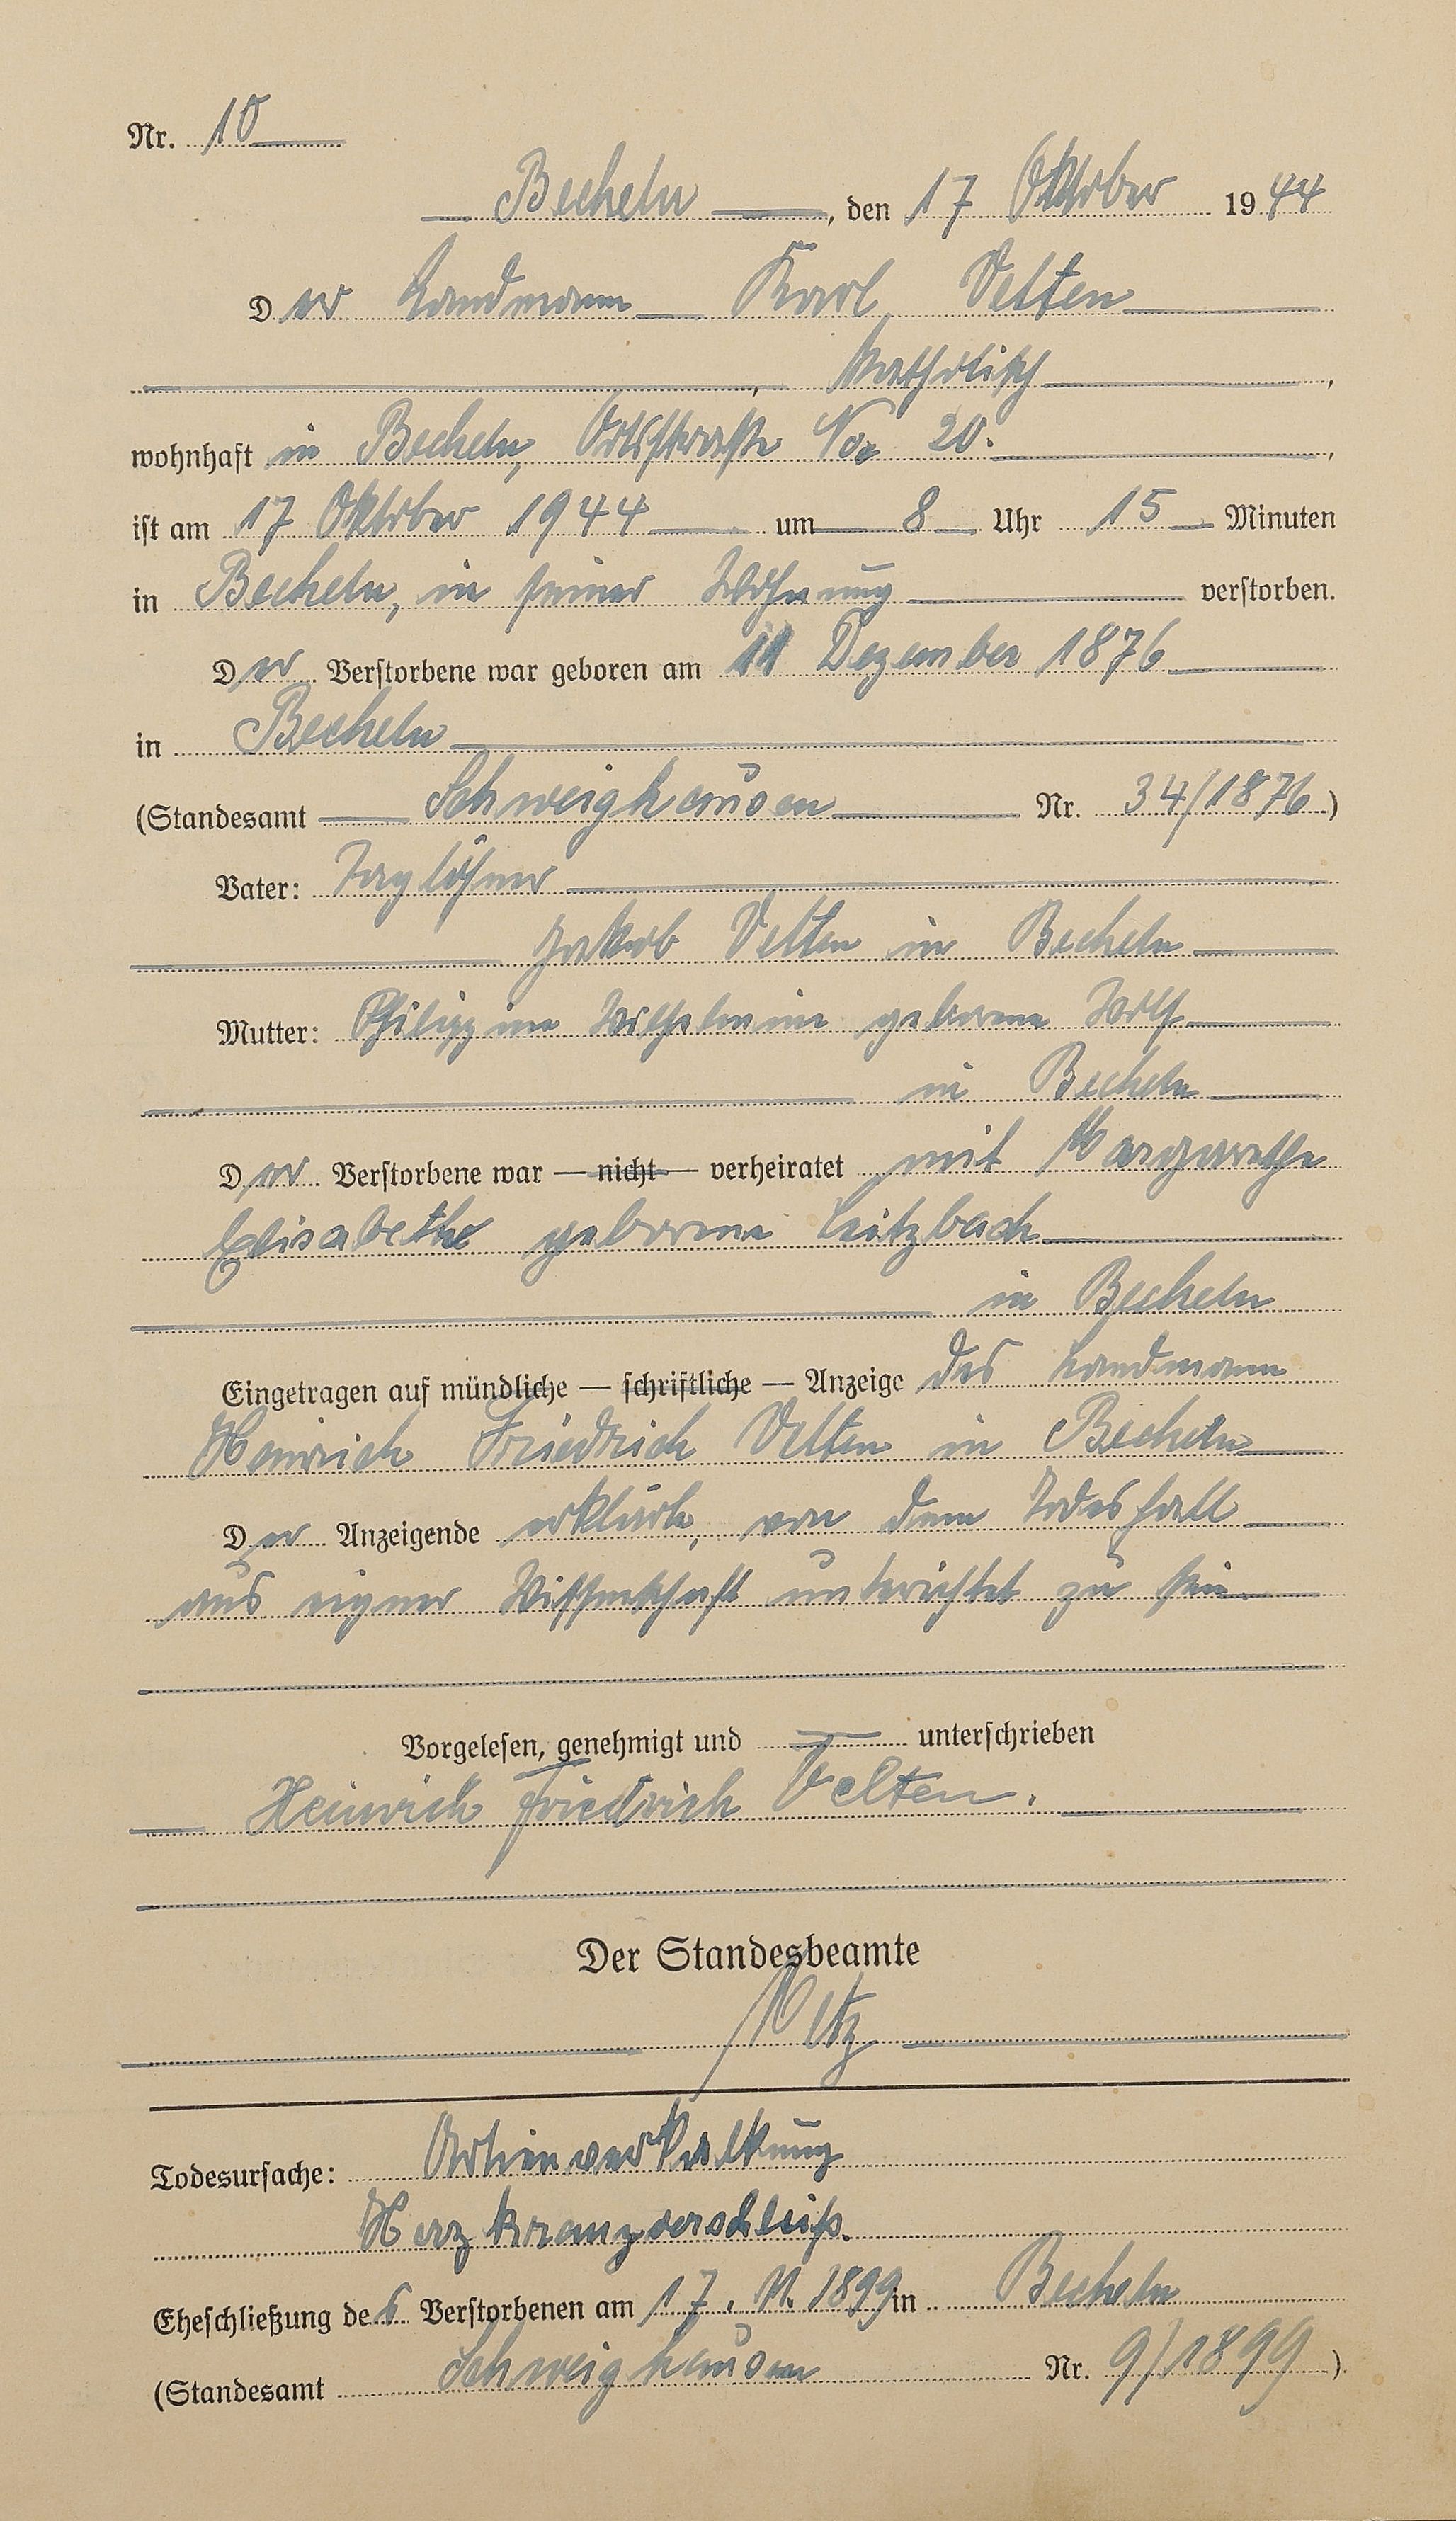 Nr. 10
Becheln, den 17 Oktober 1944
Der Landmann Karl Velten
, katholisch,
wohnhaft in Becheln, Ortsstraße No 20.,
ist am 17 Oktober 1944 um 8 Uhr 15 Minuten
in Becheln, in seiner Wohnung verstorben.
Der Verstorbene war geboren am 11 Dezember 1876
in Becheln
(Standesamt Schweighausen Nr. 34/1876)
Vater: Taglöhner
Jakob Velten in Becheln
Mutter: Philippine Wilhelmine geborene Wolf
in Becheln
Der Verstorbene war — nicht — verheiratet mit Margarethe
Elisabethe geborene Leitzbach
in Becheln
Eingetragen auf mündliche — schriftliche — Anzeige des Landmann
Heinrich Friedrich Velten in Becheln
Der Anzeigende erklärte, von dem Todesfall
aus eigner Wissenschaft unterichtet zu sein.
Vorgelesen, genehmigt und unterschrieben
Heinrich Friedrich Velten.
Der Standesbeamte
Todesursache: Artienverkalkung
Herzkranzverschluß.
Eheschließung des Verstorbenen am 17. 11. 1899 in Becheln
(Standesamt Schweighausen Nr. 9/1899).